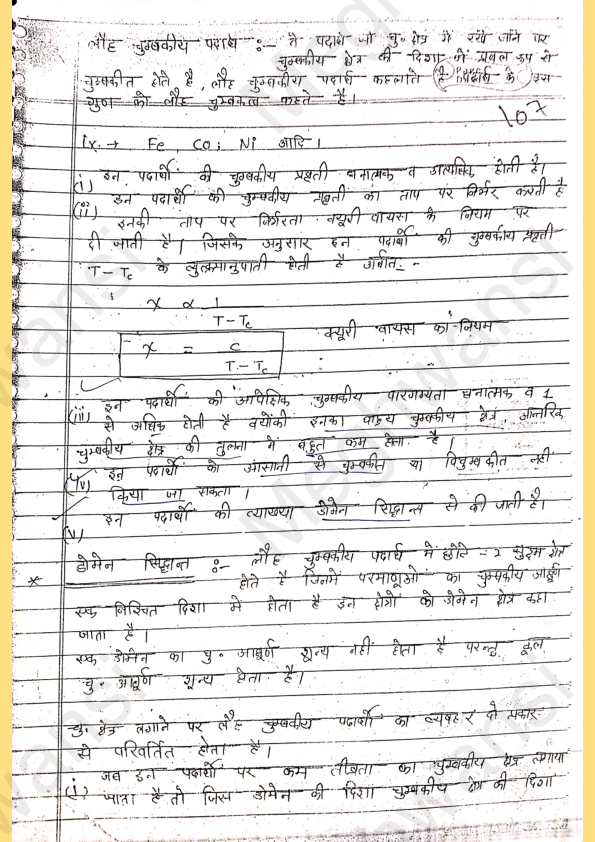 लौह चुम्बकीय पदार्थ :- वे पदार्थ जो चु॰ क्षेत्र में रखे जाने पर
चुम्बकीय क्षेत्र की दिशा में प्रबल रूप से
चुम्बकीत होते है, लौह चुम्बकीय पदार्थ कहलाते है के इस
गुण को लौह चुम्बकत्व कहते है।
107
Ex. → Fe, Co, Ni आदि।
(i) इन पदार्थों की चुम्बकीय प्रवृती धनात्मक व अत्यधिक होती है।
(ii) इन पदार्थों की चुम्बकीय प्रवृती का ताप पर निर्भर करती है
इनकी ताप पर निर्भरता क्यूरी वायस के नियम पर
दी जाती है। जिसके अनुसार इन पदार्थों की चुम्बकीय प्रवृती
T-Tc के व्युत्क्रमानुपाती होती है अर्थात :-
χ ∝ 1 / T-Tc
χ = C / T-Tc क्यूरी वायस का नियम
(iii) इन पदार्थों की आपेक्षिक चुम्बकीय पारगम्यता धनात्मक व 1
से अधिक होती है क्योंकी इनका बाह्य चुम्बकीय क्षेत्र, आन्तरिक
चुम्बकीय क्षेत्र की तुलना में बहुत कम होता है।
(iv) इन पदार्थों को आसानी से चुम्बकीत या विचुम्बकीत नहीं
किया जा सकता।
(v) इन पदार्थों की व्याख्या डोमेन सिद्धान्त से की जाती है।
* डोमेन सिद्धान्त :- लौह चुम्बकीय पदार्थ में छोटे-2 चुम्ब क्षेत्र
होते है जिनमें परमाणुओं का चुम्बकीय आघूर्ण
एक निश्चित दिशा में होता है इन क्षेत्रों को डोमेन क्षेत्र कहा
जाता है।
एक डोमेन का चु॰ आघूर्ण शून्य नहीं होता है परन्तु कुल
चु॰ आघूर्ण शून्य होता है।
चु॰ क्षेत्र लगाने पर लौह चुम्बकीय पदार्थों का व्यवहार दो प्रकार
से परिवर्तित होता है।
(i) जब इन पदार्थों पर कम तीव्रता का चुम्बकीय क्षेत्र लगाया
जाता है तो जिस डोमेन की दिशा चुम्बकीय क्षेत्र की दिशा
Meghwansi